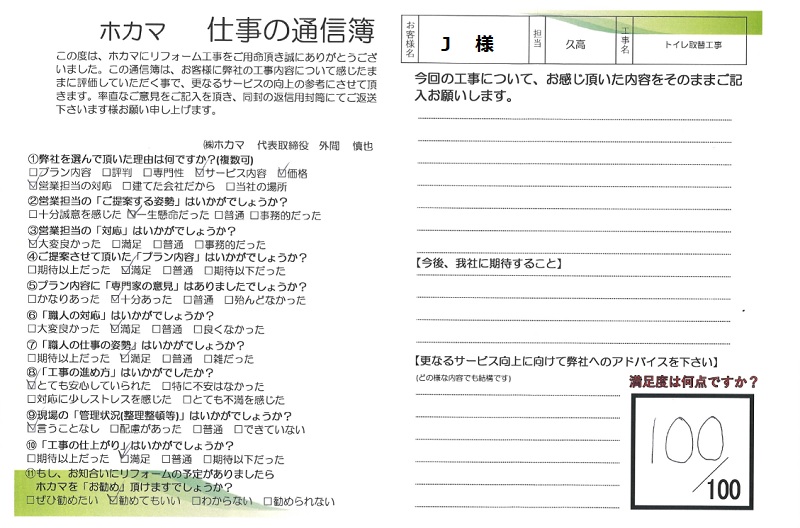 ホカマ 仕事の通信簿
この度は、ホカマにリフォーム工事をご用命頂き誠にありがとうござ
いました。この通信簿は、お客様に弊社の工事内容について感じたま
まに評価していただく事で、更なるサービスの向上の参考にさせて頂
きます。率直なご意見をご記入を頂き、同封の返信用封筒にてご返送
下さいます様お願い申し上げます。
㈱ホカマ 代表取締役 外間 慎也
①弊社を選んで頂いた理由は何ですか？(複数可)
□プラン内容 □評判 □専門性 ☑サービス内容 ☑価格
☑営業担当の対応 □建てた会社だから □当社の場所
②営業担当の「ご提案する姿勢」はいかがでしょうか？
□十分誠意を感じた ☑一生懸命だった □普通 □事務的だった
③営業担当の「対応」はいかがでしょうか？
☑大変良かった □満足 □普通 □事務的だった
④ご提案させて頂いた「プラン内容」はいかがでしょうか？
□期待以上だった ☑満足 □普通 □期待以下だった
⑤プラン内容に「専門家の意見」はありましたでしょうか？
□かなりあった ☑十分あった □普通 □殆んどなかった
⑥「職人の対応」はいかがでしょうか？
□大変良かった ☑満足 □普通 □良くなかった
⑦「職人の仕事の姿勢」はいかがでしょうか？
□期待以上だった ☑満足 □普通 □雑だった
⑧「工事の進め方」はいかがでしたか？
☑とても安心していられた □特に不安はなかった
□対応に少しストレスを感じた □とても不満を感じた
⑨現場の「管理状況(整理整頓等)」はいかがでしょうか？
☑言うことなし □配慮があった □普通 □できていない
⑩「工事の仕上がり」はいかがでしょうか？
□期待以上だった ☑満足 □普通 □期待以下だった
⑪もし、お知合いにリフォームの予定がありましたら
ホカマを「お勧め」頂けますでしょうか？
□ぜひ勧めたい ☑勧めてもいい □わからない □勧められない
お客様名 J 様 担当 久高 工事名 トイレ取替工事
今回の工事について、お感じ頂いた内容をそのままご記
入お願いします。
【今後、我社に期待すること】
【更なるサービス向上に向けて弊社へのアドバイスを下さい】
(どの様な内容でも結構です)
満足度は何点ですか？
100
/100